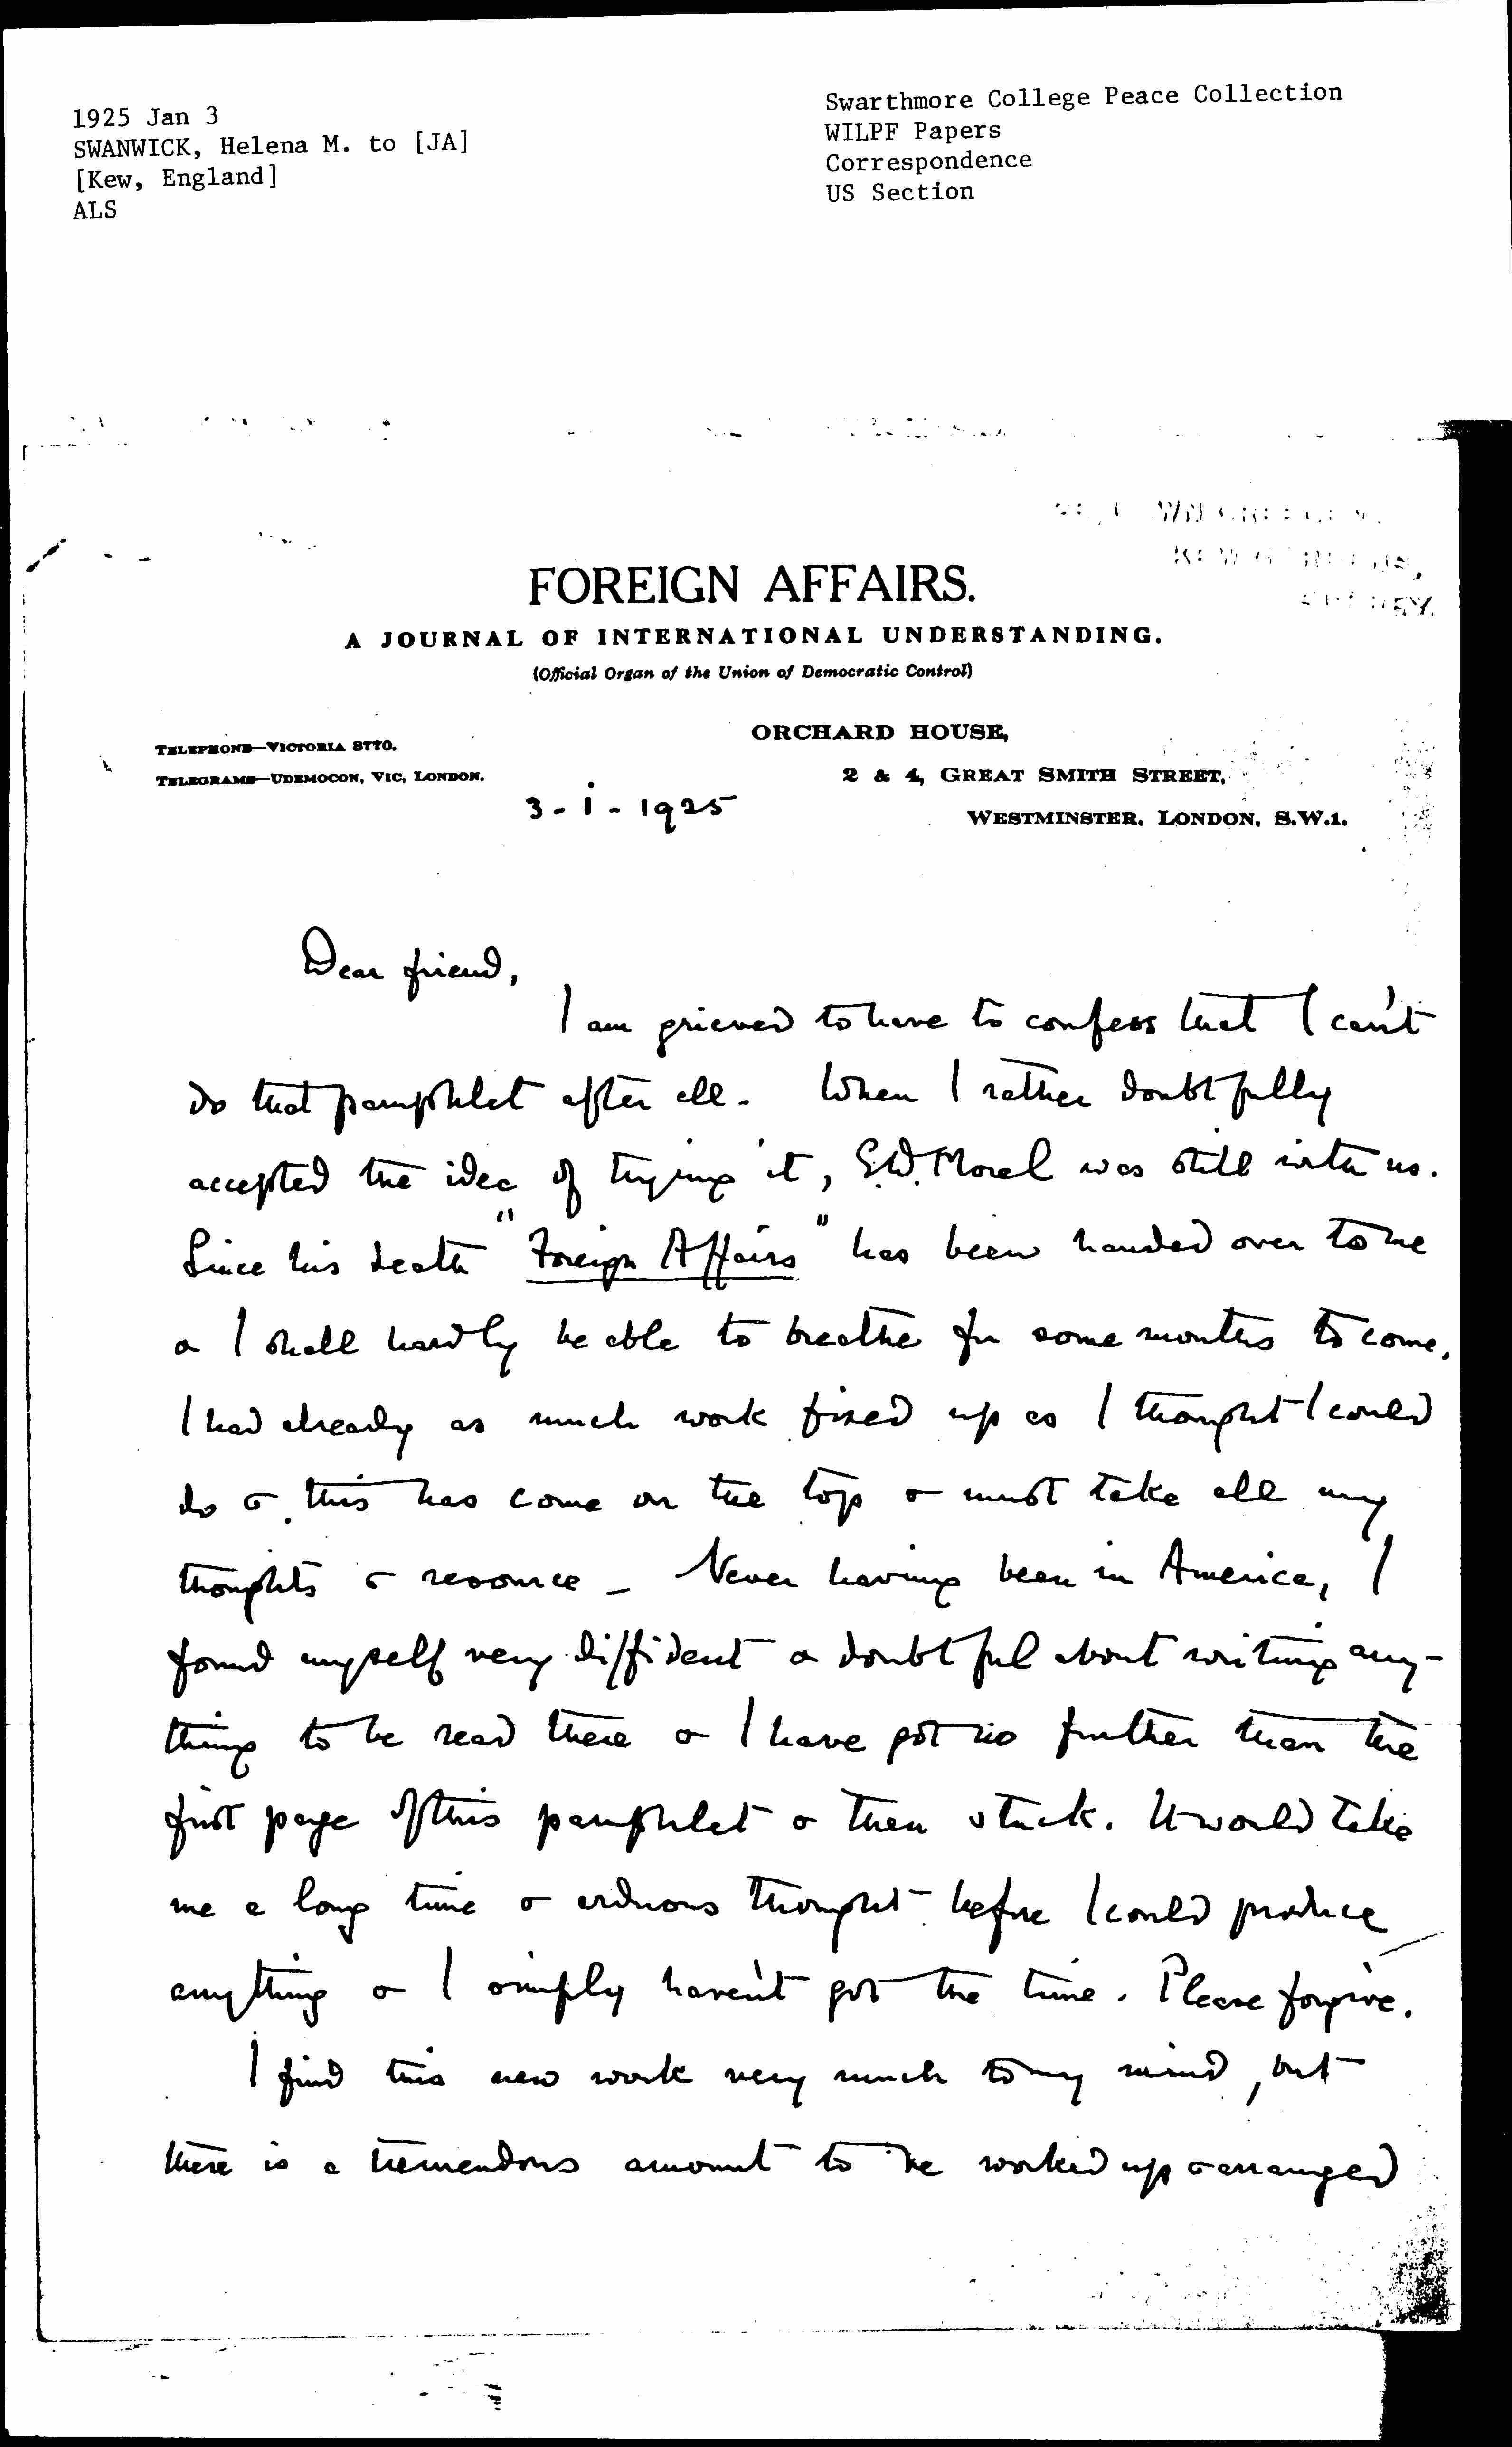 1925 Jan 3
SWANWICK, Helena M. to [JA]
[Kew, England]
ALS
Swarthmore College Peace Collection
WILPF Papers
Correspondence
US Section
FOREIGN AFFAIRS.
A JOURNAL OF INTERNATIONAL UNDERSTANDING.
(Official Organ of the Union of Democratic Control)
TELEPHONE—VICTORIA 8770.
TELEGRAMS—UDEMOCON, VIC, LONDON.
ORCHARD HOUSE,
2 & 4, GREAT SMITH STREET,
WESTMINSTER, LONDON, S.W.1.
3 - i - 1925
Dear friend,
I am grieved to have to confess that I can't
do that pamphlet after all. When I rather doubtfully
accepted the idea of trying it, E.D. Morel was still with us.
Since his death "Foreign Affairs" has been handed over to me
& I shall hardly be able to breathe for some months to come.
I had already as much work fixed up as I thought I could
do & this has come on the top & must take all my
thoughts & resource - Never having been in America, I
found myself very diffident & doubtful about writing any-
thing to be read there & I have got no further than the
first page of this pamphlet & then stuck. It would take
me a long time & arduous thought before I could produce
anything & I simply haven't got the time. Please forgive.
I find this new work very much to my mind, but
there is a tremendous amount to be worked up & arranged